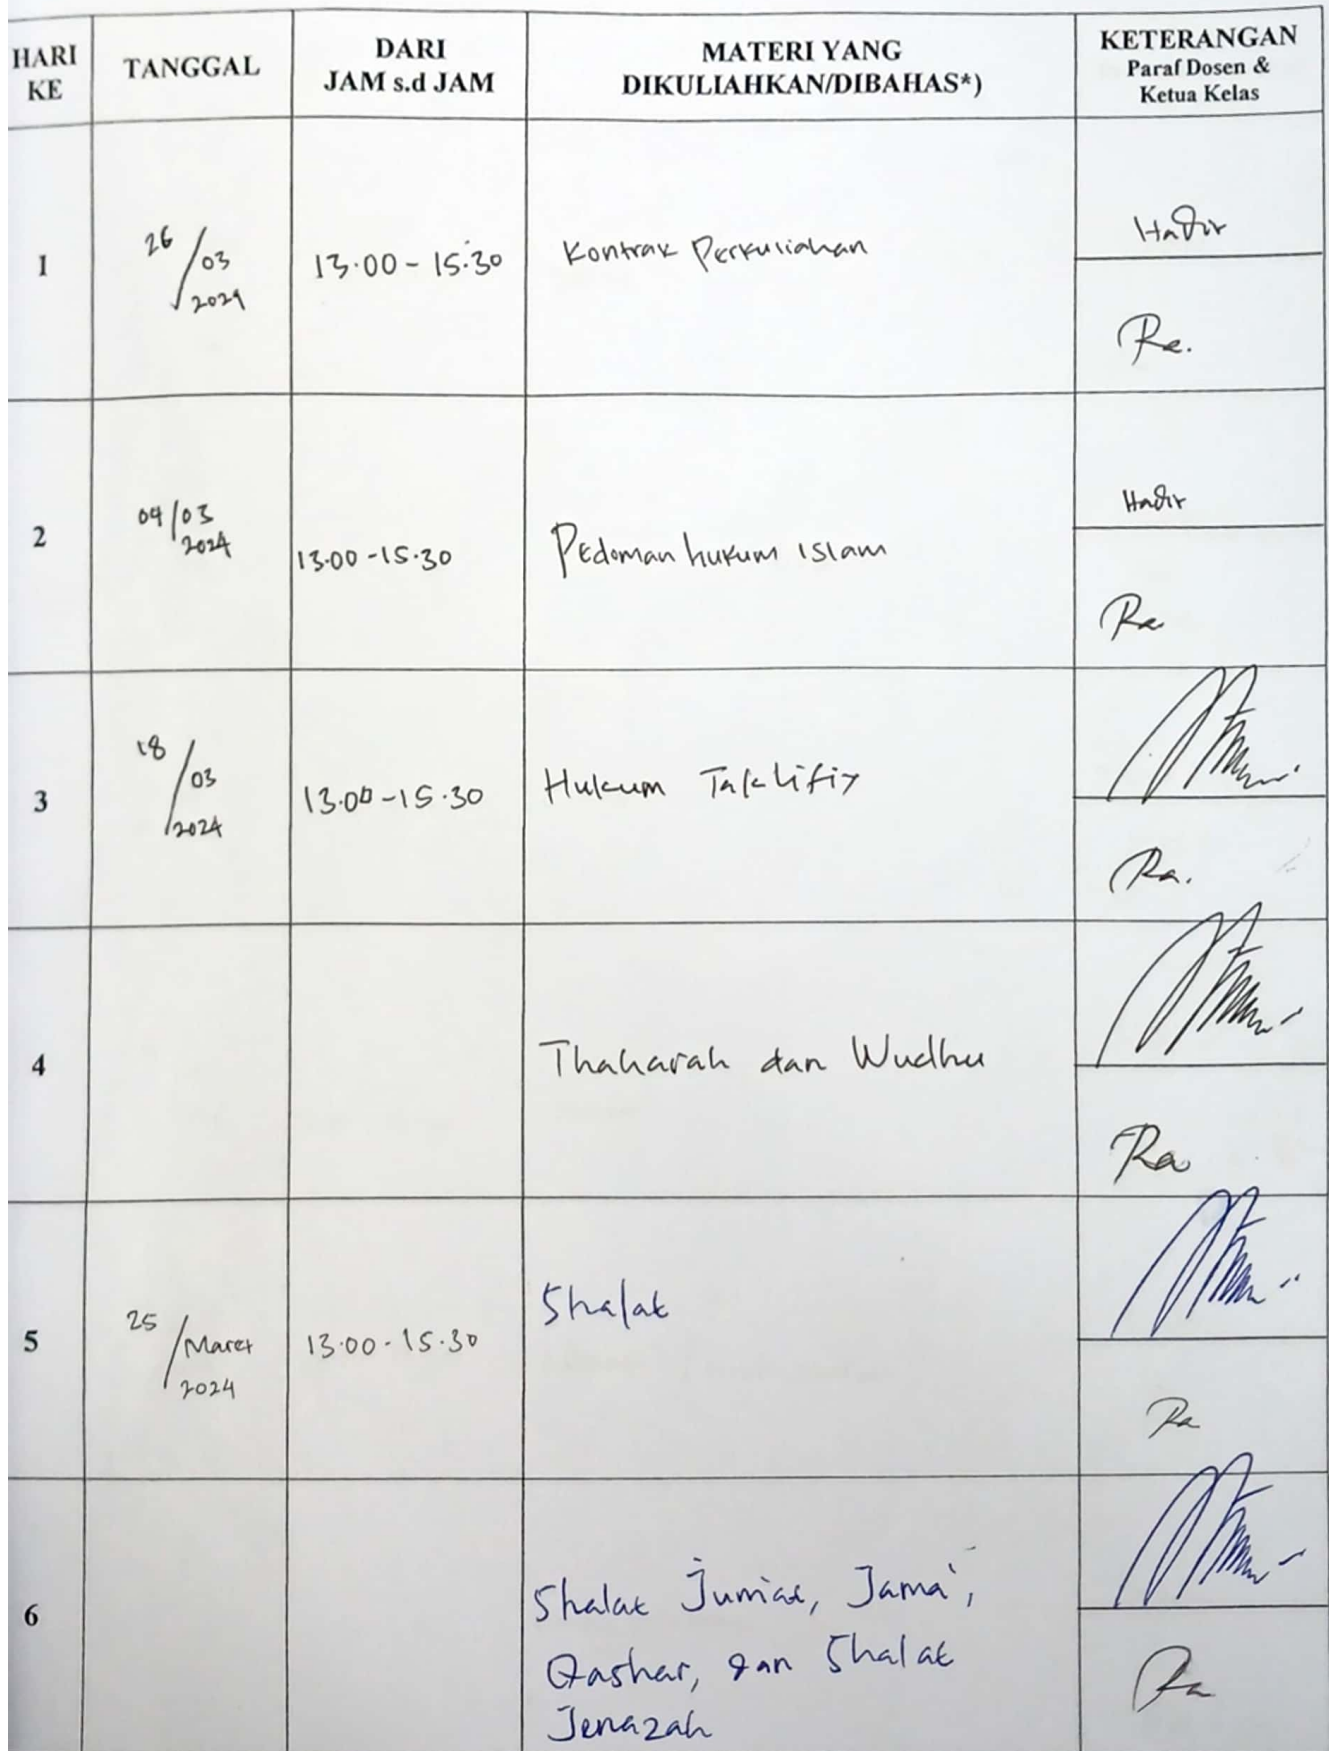 HARI
KE
TANGGAL
DARI
JAM s.d JAM
MATERI YANG
DIKULIAHKAN/DIBAHAS*)
KETERANGAN
Paraf Dosen &
Ketua Kelas
1
26/03
2024
13.00 - 15.30
Kontrak Perkuliahan
Hadir
Ra.
2
04/03
2024
13.00 - 15.30
Pedoman hukum islam
Hadir
Ra
3
18/03
2024
13.00 - 15.30
Hukum Taklifiy
Ra.
4
Thaharah dan Wudhu
Ra
5
25/Maret
2024
13.00 - 15.30
Shalat
Ra
6
Shalat Jumat, Jama',
Qashar, dan Shalat
Jenazah
Ra